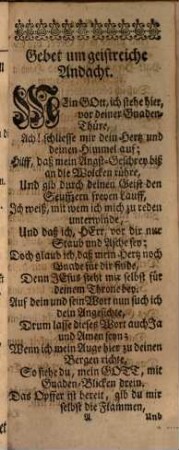 Gebet um geistreiche
Andacht.
MEin GOtt, ich stehe hier,
vor deiner Gnaden-
Thüre,
Ach! schliesse mir dein Hertz und
deinen Himmel auf;
Hilff, daß mein Angst-Geschrey biß
an die Wolcken rühre,
Und gib durch deinen Geist den
Seuffzern freyen Lauff,
Ich weiß, mit wem ich mich zu reden
unterwinde,
Und daß ich, HErr, vor dir nur
Staub und Asche sey;
Doch glaub ich, daß mein Hertz noch
Gnade für dir finde,
Denn JEsus steht mir selbst für
deinem Throne bey.
Auf dein und sein Wort nun such ich
dein Angesichte,
Drum lasse dieses Wort auch Ja
und Amen seyn;
Wenn ich mein Auge hier zu deinen
Bergen richte,
So siehe du, mein GOTT, mit
Gnaden-Blicken drein.
Das Opffer ist bereit, gib du mir
selbst die Flammen,
Und